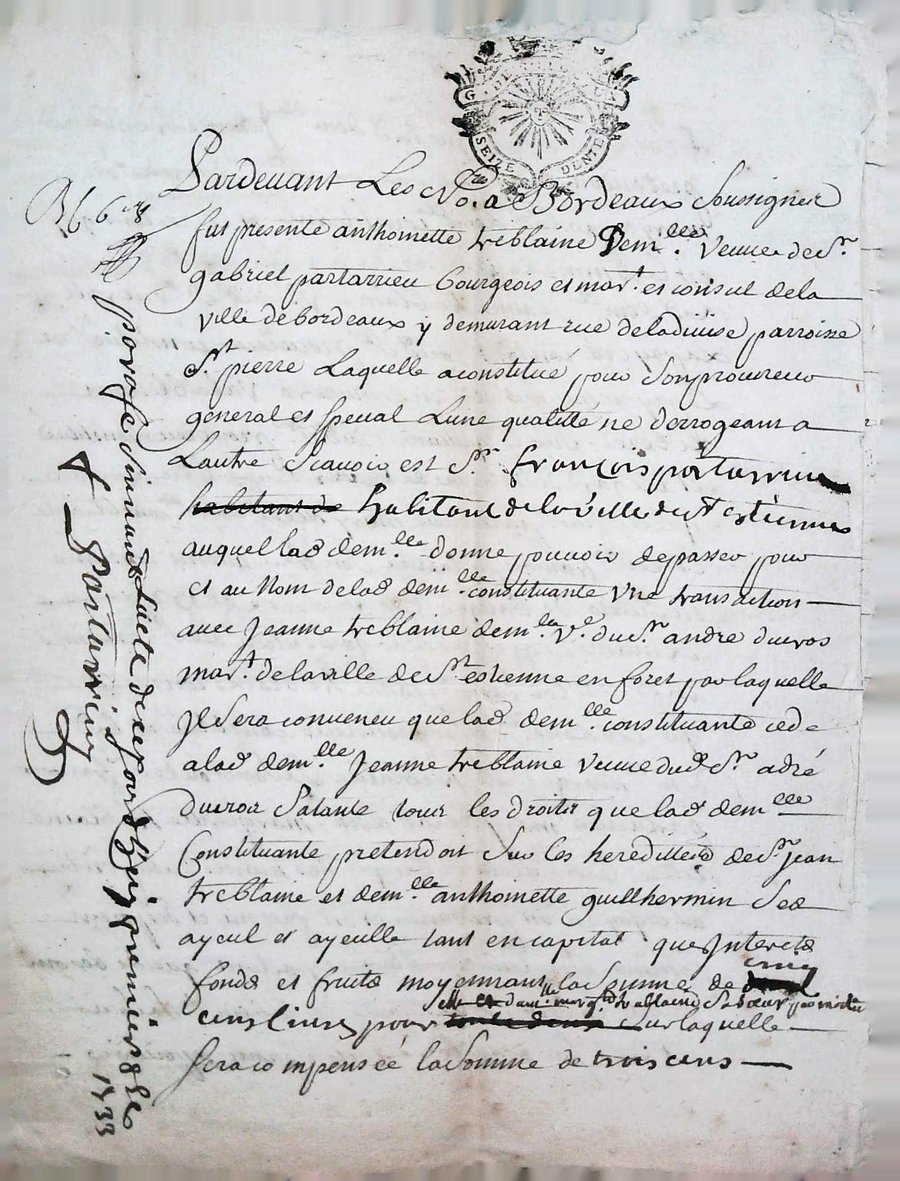 G. DE BORDEAUX
SEIZE DENIE
Pardevant Les No.res a Bordeaux Soussignes
fut presente anthoinette treblaine Dem.lle Veuve de Sr.
gabriel partarrieu Bourgeois et mar.t et consul dela
ville de bordeaux y demurant rue deladivise parroisse
St. pierre Laquelle aconstitué pour Sonprocureur
general et special Lune qualité ne derrogeant a
Lautre Scauoir est Sr. françois partarrieu
habitant de habitant de la Ville de st estienne
auquel lad dem.lle donne pouvoir depasser pour
et au Nom delad dem.lle constituante Une transaction
avec Jeanne treblaine dem.lle Ve. du Sr. andre ducros
mar.t de la ville de St. estienne en foret par laquelle
Jl Sera conueneu que lad dem.lle constituante cede
alad dem.lle Jeanne treblaine Veuve dud Sr. adré
ducros Satante tous les droits que lad dem.lle
Constituante pretendoit Sur les heredittés de Sr. jean
treblaine et dem.lle anthoinette guilhermin Ses
ayeul et ayeulle tant en capital que Jnterets
fonds et fruits moyennant la Somme de cinq
cens livres pour Sur laquelle
Sera compensée la Somme de trois cens
parafé Suivant Lacte de ce jour d'huy premier
1733
Partarrieu